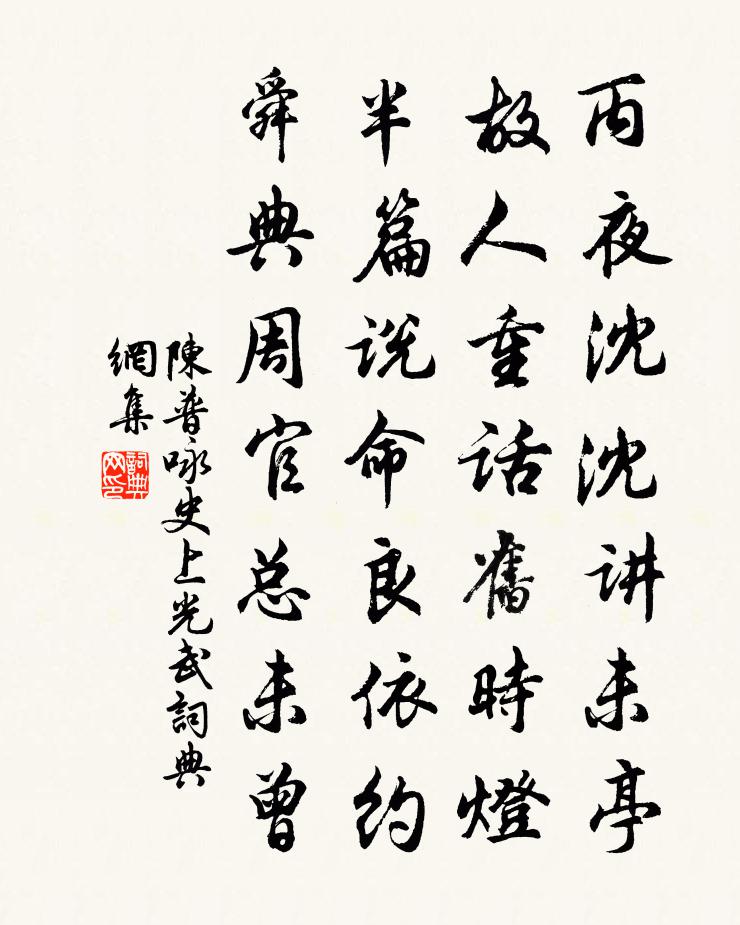 丙夜沈沈讲未亭
故人重话舊時燈
半篇说命良依约
舜典周官总未曾
陳普咏史上光武詞典
網集
詞典網印